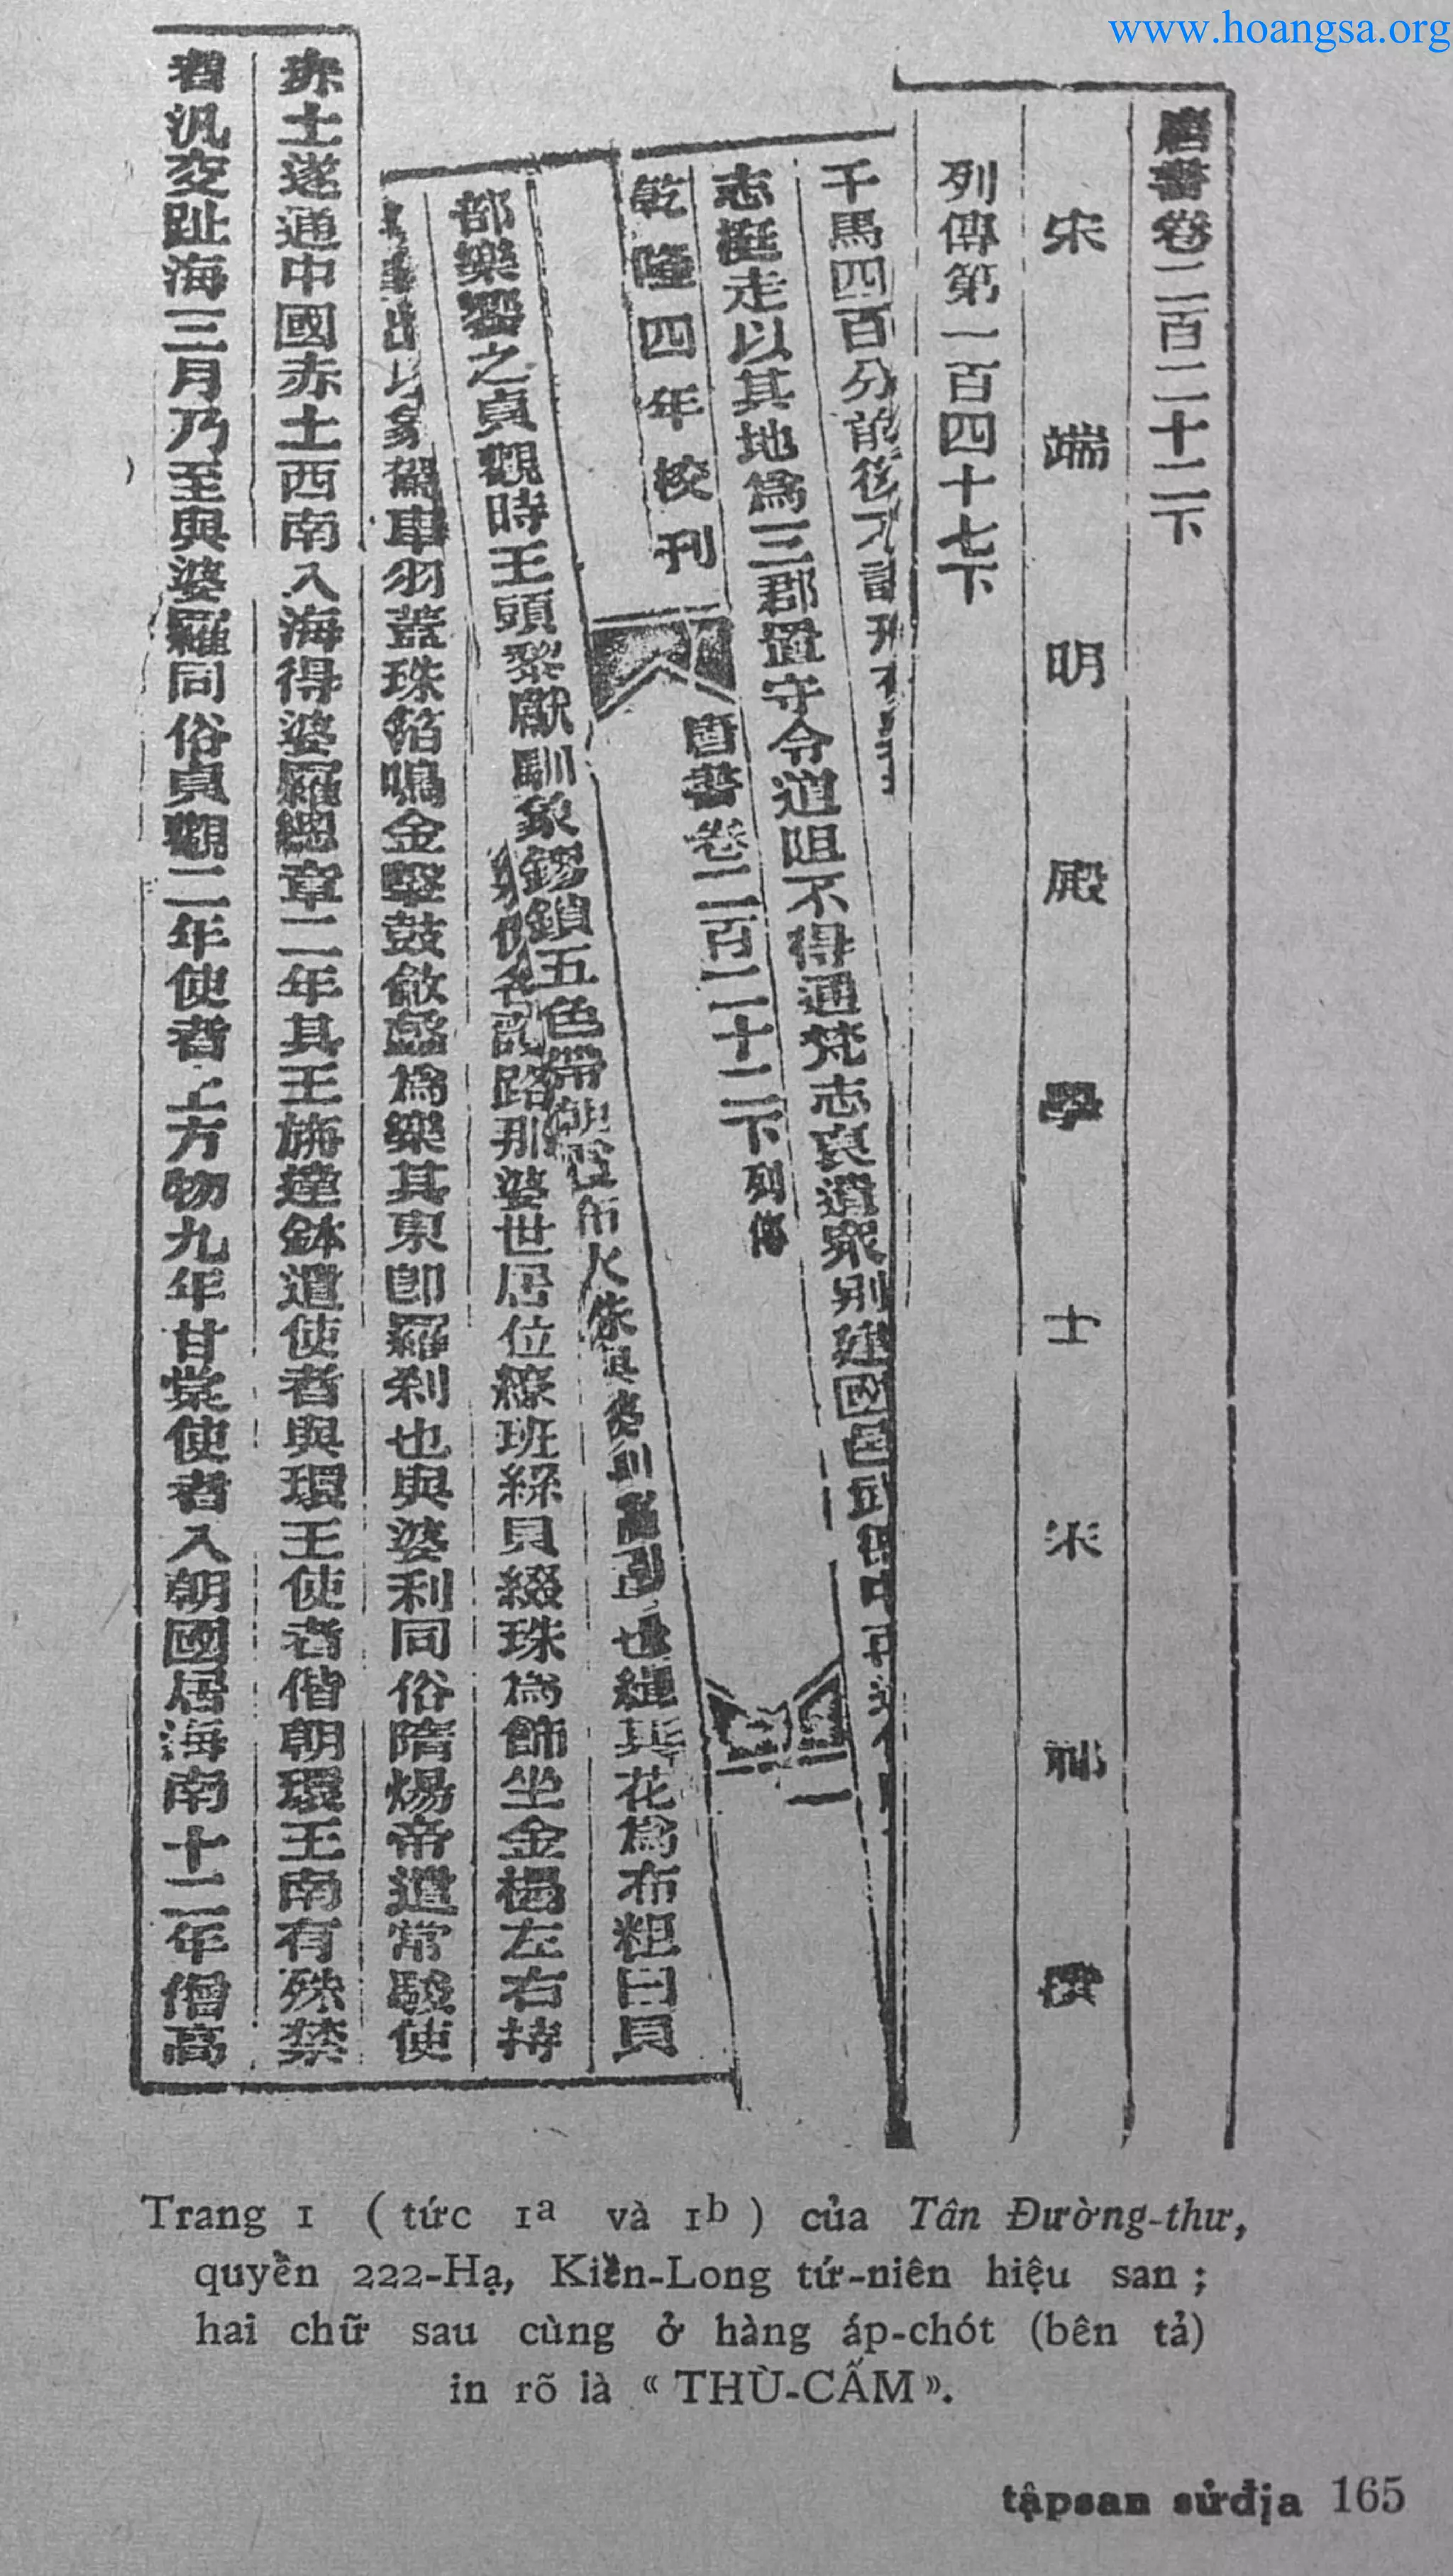 www.hoangsa.org
唐書卷二百二十二下
宋端明殿學士宋祁撰
列傳第一百四十七下
千馬四百分前後
志挺走以其地為三郡置守令道阻不得通梵志裒遺衆別建國邑武德中再
乾隆四年校刊
唐書卷二百二十二下列傳
一
部樂饗之貞觀時王頭黎獻馴象鏐鎖五色帶朝霞布火珠 也緝其花為布粗曰貝
路那婆世居位繚班絲貝綴珠為飾坐金榻左右持
出以象駕車羽蓋珠箔鳴金擊鼓 蠡為樂其東即羅刹也與婆利同俗隋煬帝遣常駿使
赤土遂通中國赤土西南入海得婆羅總章二年其王旃達鉢遣使者與環王使者偕朝環王南有殊禁
者汎交趾海三月乃至與婆羅同俗貞觀二年使者上方物九年甘棠使者入朝國居海南十二年僧高
Trang 1 ( tức 1a và 1b ) của Tân Đường-thư,
quyển 222-Hạ, Kiền-Long tứ-niên hiệu san ;
hai chữ sau cùng ở hàng áp-chót (bên tả)
in rõ là « THÙ-CẤM ».
tậpsan sửđịa 165